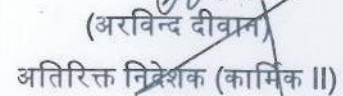 (अरविन्द दीवान)
अतिरिक्त निदेशक (कार्मिक II)